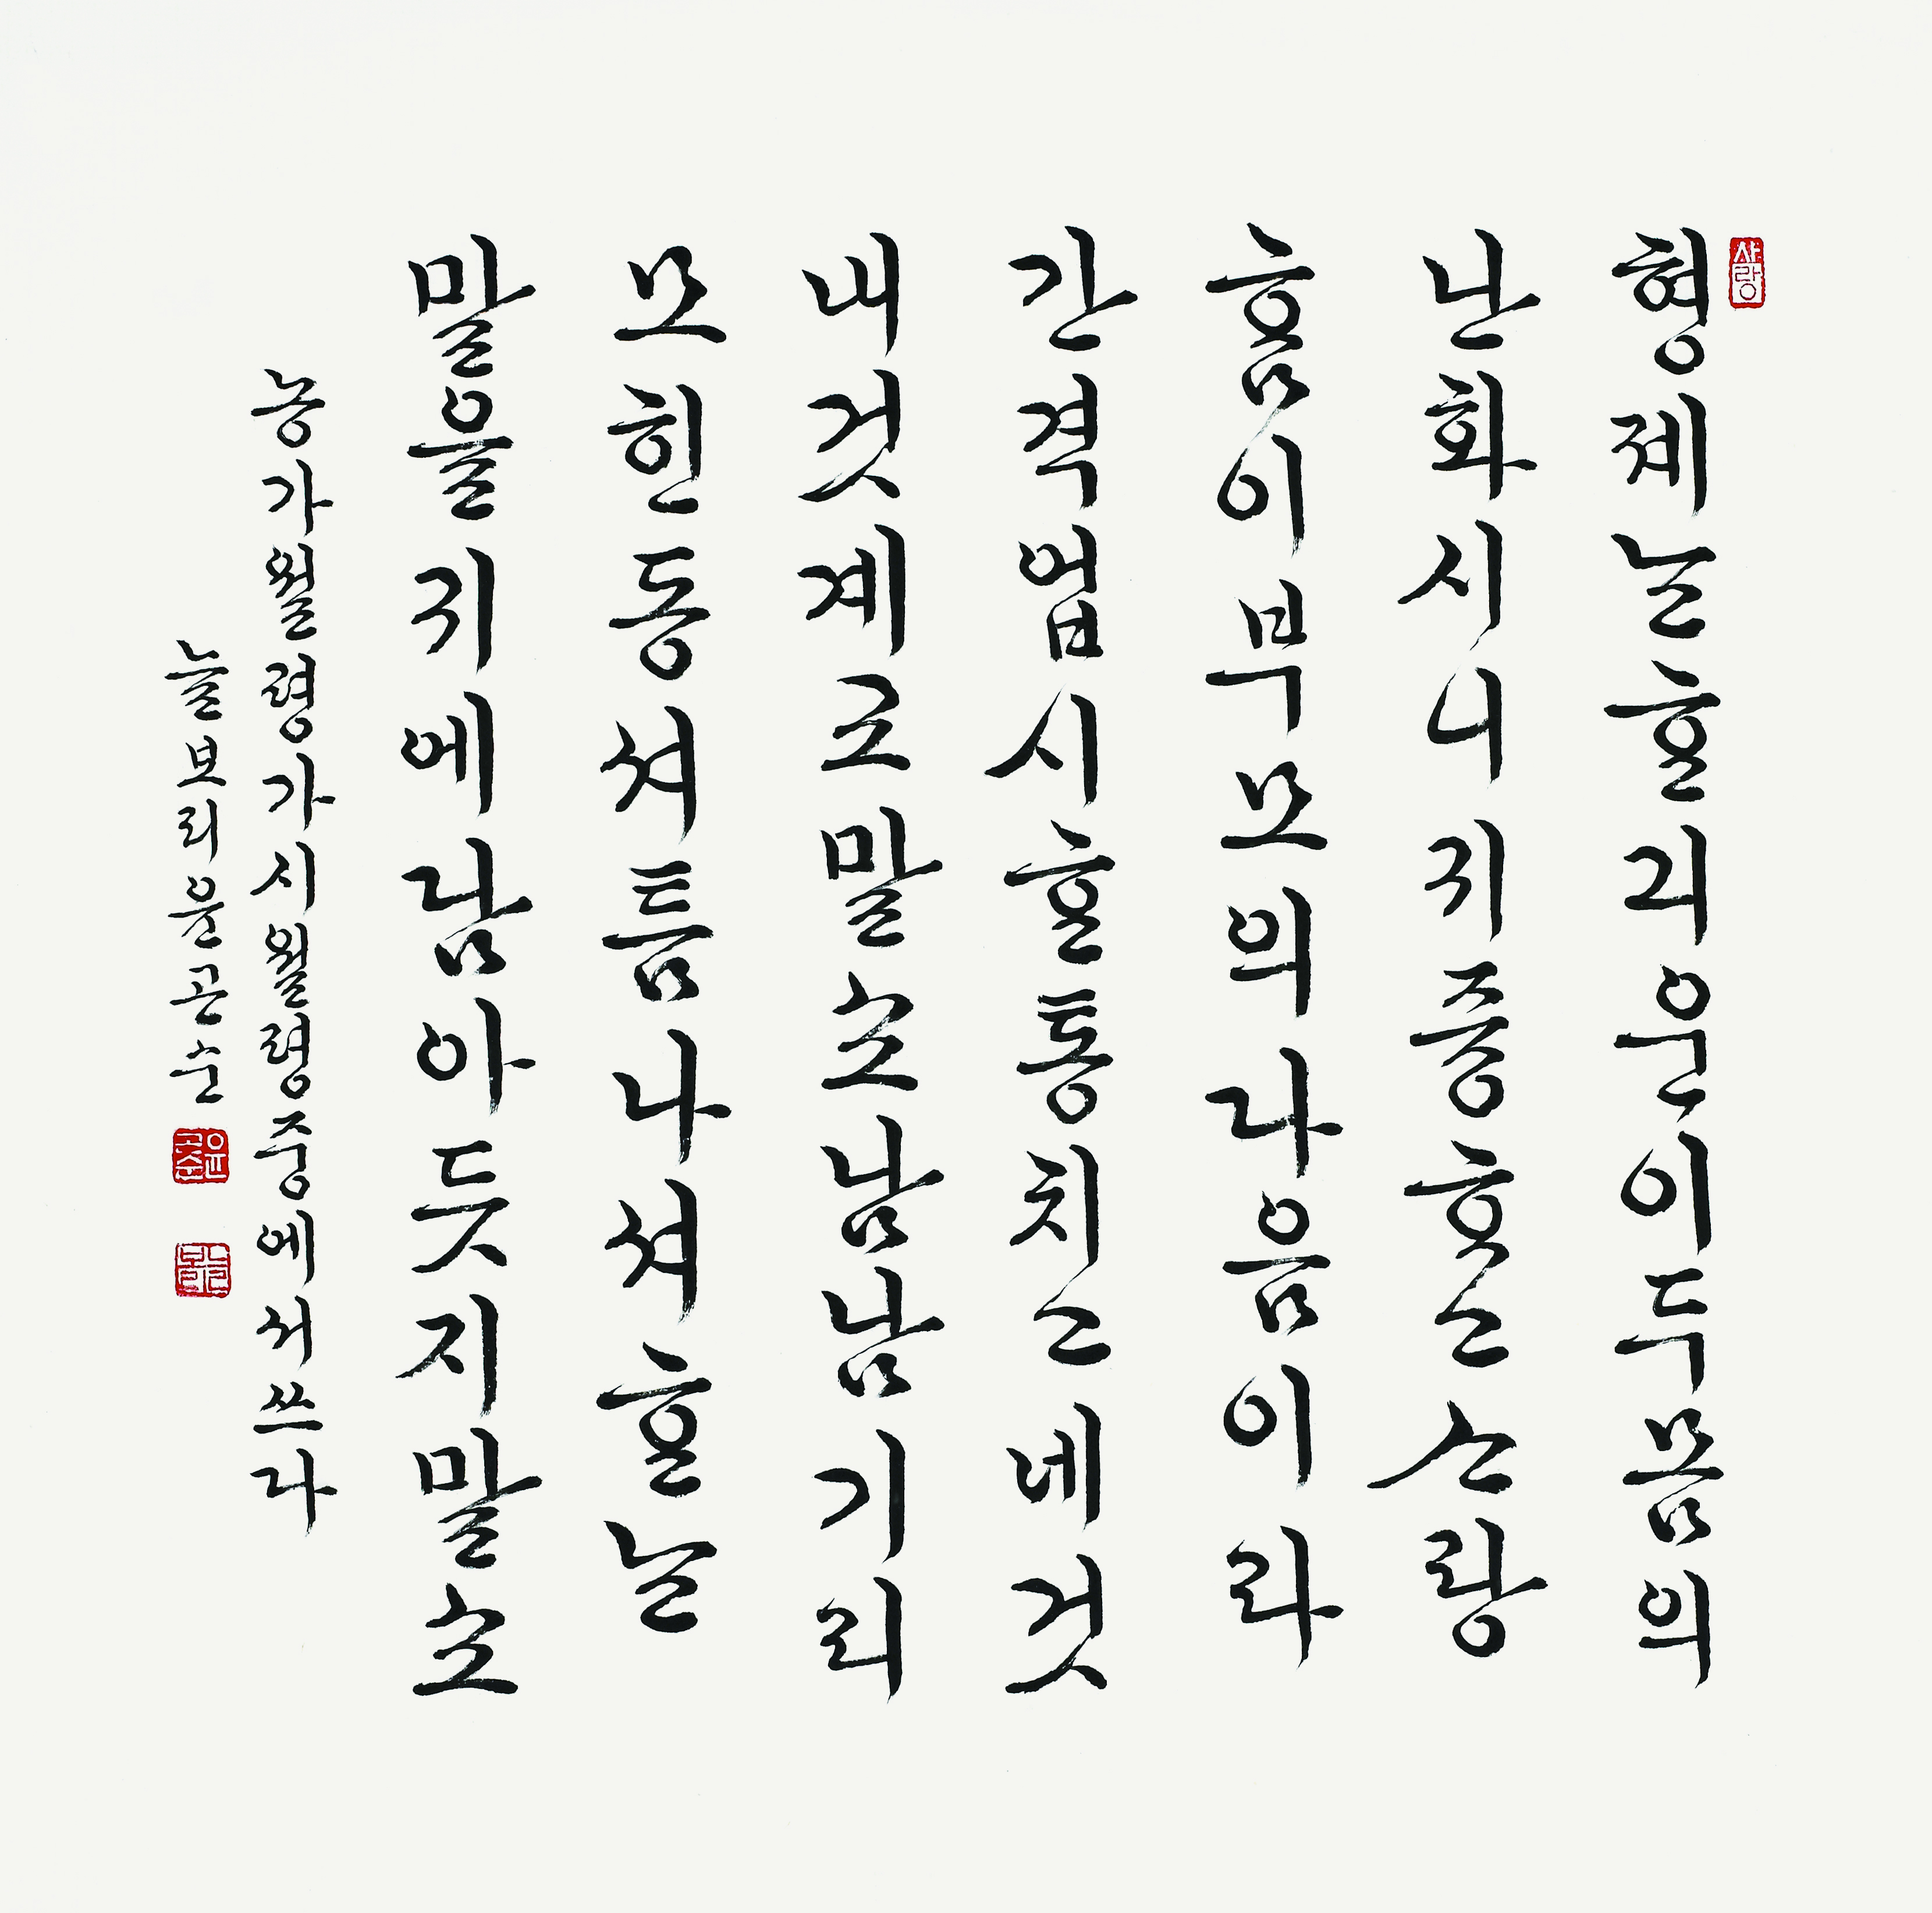 사랑
형제ᄂᆞᆫᄒᆞᆫ긔운이두몸의
난화시니귀즁ᄒᆞ고ᄉᆞ랑
ᄒᆞᆷ이부모의다음이라
간격업시ᄒᆞᆫ통치고네것
내것계교말소남남기리
모힌동셔틈나셔ᄒᆞᆫᄂᆞᆫ
말을귀에담아듯지말소
농가월령가시월령중에서쓰다
늘보리윤곤순